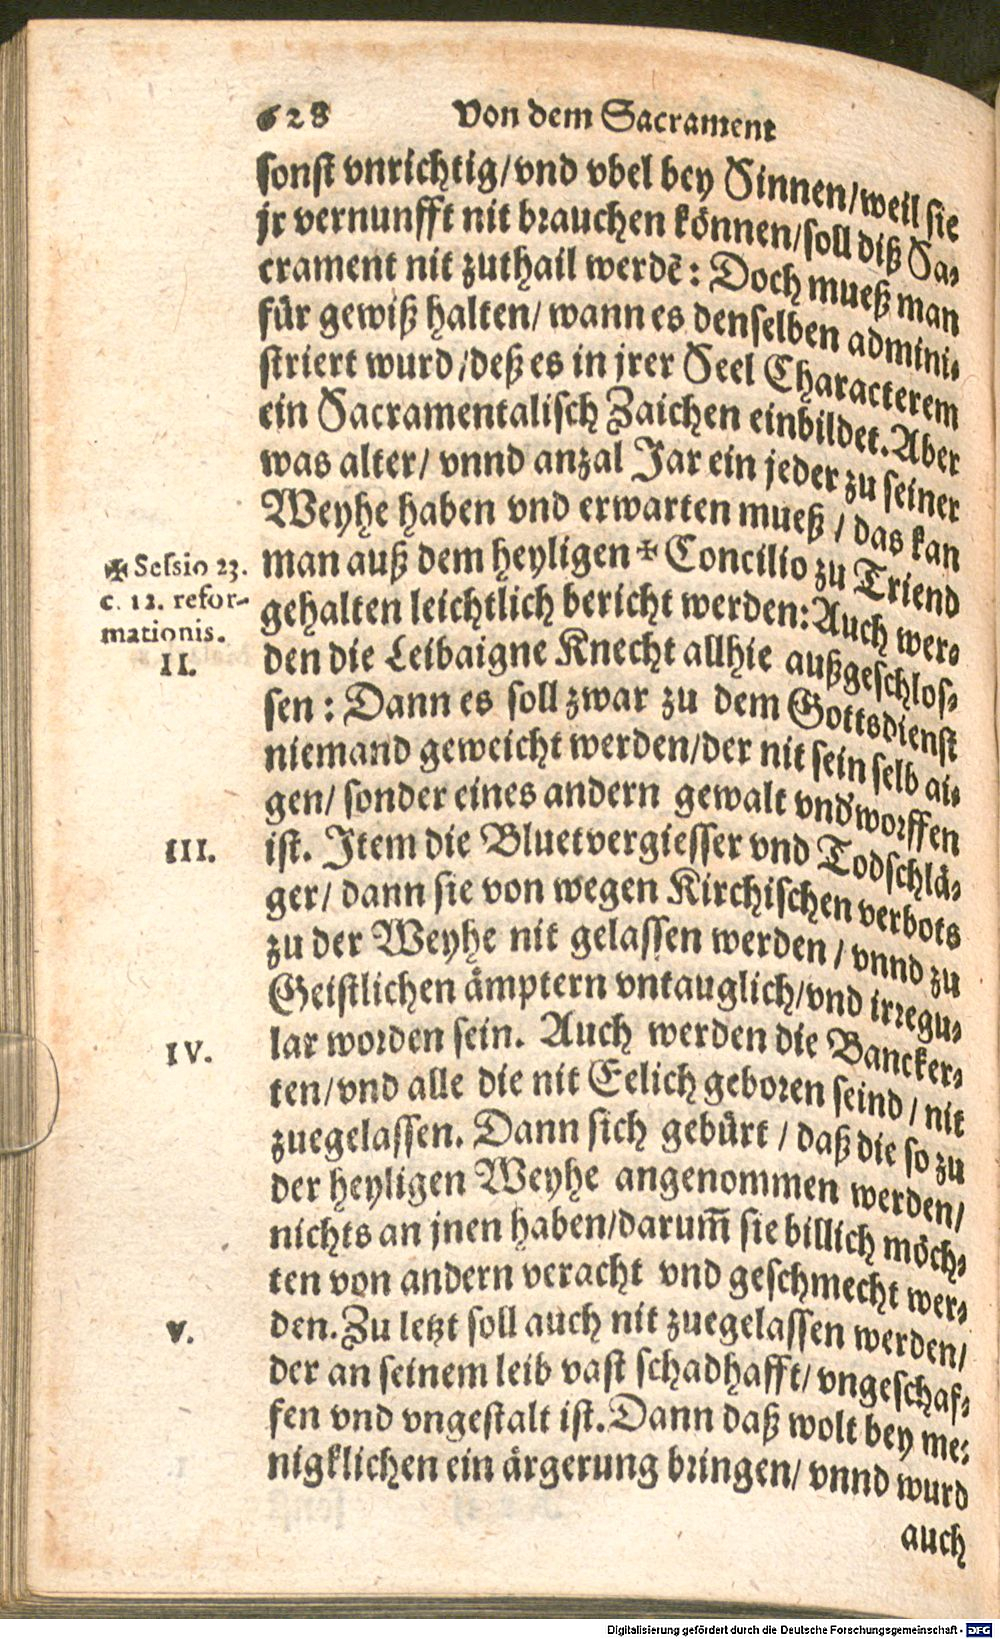 628 Von dem Sacrament
sonst vnrichtig/vnd vbel bey Sinnen/weil sie
jr vernunfft nit brauchen können/soll diß Sa-
crament nit zuthail werdẽ: Doch mueß man
für gewiß halten/ wann es denselben admini-
striert wurd/deß es in jrer Seel Characterem
ein Sacramentalisch Zaichen einbildet. Aber
was alter/ vnnd anzal Jar ein jeder zu seiner
Weyhe haben vnd erwarten mueß / das kan
man auß dem heyligen ✠ Concilio zu Triend
gehalten leichtlich bericht werden: Auch wer-
den die Leibaigne Knecht allhie außgeschlos-
sen : Dann es soll zwar zu dem Gottsdienst
niemand geweicht werden/der nit sein selb ai-
gen/ sonder eines andern gewalt vnd'worffen
ist. Item die Bluetvergiesser vnd Todschlä-
ger/ dann sie von wegen Kirchischen verbots
zu der Weyhe nit gelassen werden / vnnd zu
Geistlichen ämptern vntauglich/vnd irregu-
lar worden sein. Auch werden die Bancker-
ten/vnd alle die nit Eelich geboren seind / nit
zuegelassen. Dann sich gebürt / daß die so zu
der heyligen Weyhe angenommen werden/
nichts an jnen haben/darum̃ sie billich möch-
ten von andern veracht vnd geschmecht wer-
den. Zu letzt soll auch nit zuegelassen werden/
der an seinem leib vast schadhafft/ vngeschaf-
fen vnd vngestalt ist. Dann daß wolt bey me-
nigklichen ein ärgerung bringen/ vnnd wurd
auch
✠ Sessio 23.
c. 12. refor-
mationis.
II.
III.
IV.
V.
Digitalisierung gefördert durch die Deutsche Forschungsgemeinschaft - DFG